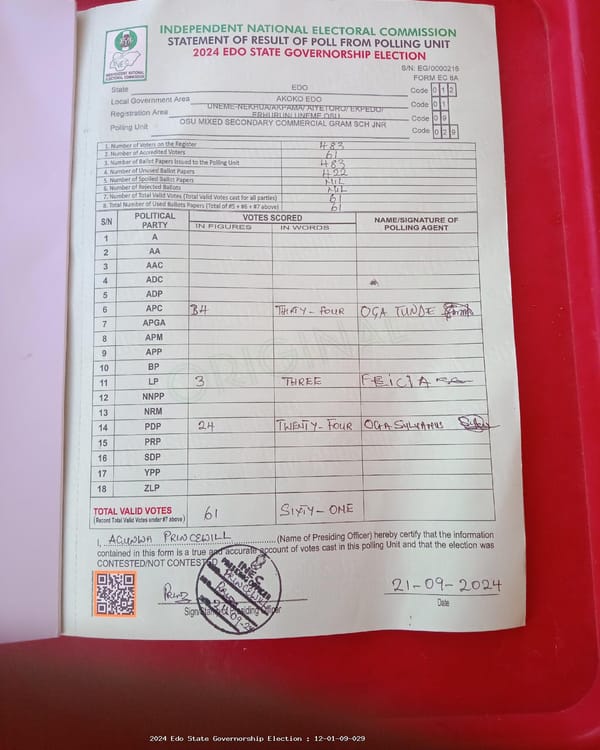 INDEPENDENT NATIONAL ELECTORAL COMMISSION
STATEMENT OF RESULT OF POLL FROM POLLING UNIT
2024 EDO STATE GOVERNORSHIP ELECTION
INEC
INDEPENDENT NATIONAL ELECTORAL COMMISSION
S/N: EG/0000216
FORM EC 8A
State EDO Code 0 1 2
Local Government Area AKOKO EDO Code 0 1
Registration Area UNEME-NEKHUA/AKPAMA/ AIYETORO/ EKPEDO/ ERHURUN/ UNEME OSU Code 0 9
Polling Unit OSU MIXED SECONDARY COMMERCIAL GRAM SCH JNR Code 0 2 9
1. Number of Voters on the Register 483
2. Number of Accredited Voters 61
3. Number of Ballot Papers Issued to the Polling Unit 483
4. Number of Unused Ballot Papers 422
5. Number of Spoiled Ballot Papers NIL
6. Number of Rejected Ballots NIL
7. Number of Total Valid Votes (Total Valid Votes cast for all parties) 61
8. Total Number of Used Ballots Papers (Total of #5 + #6 + #7 above) 61
S/N POLITICAL PARTY VOTES SCORED NAME/SIGNATURE OF POLLING AGENT
IN FIGURES IN WORDS
1 A
2 AA
3 AAC
4 ADC
5 ADP
6 APC 34 THIRTY-FOUR OGA TUNDE
7 APGA
8 APM
9 APP
10 BP
11 LP 3 THREE FELICIA
12 NNPP
13 NRM
14 PDP 24 TWENTY-FOUR OGA SYLVANUS
15 PRP
16 SDP
17 YPP
18 ZLP
ORIGINAL
TOTAL VALID VOTES 61 SIXTY-ONE
(Record Total Valid Votes under #7 above)
I, AGUNWA PRINCEWILL (Name of Presiding Officer) hereby certify that the information
contained in this form is a true and accurate account of votes cast in this polling Unit and that the election was
CONTESTED/NOT CONTESTED
INEC
21-09-2024
Sign/Stamp of Presiding Officer
Date
2024 Edo State Governorship Election : 12-01-09-029